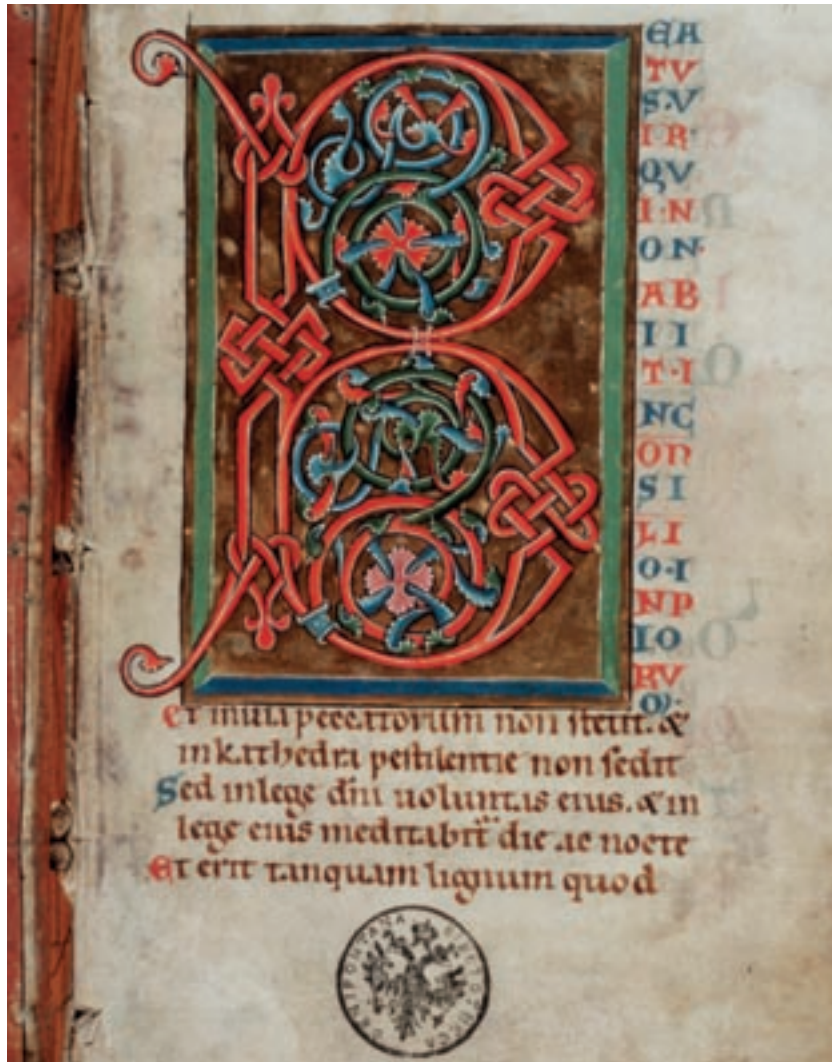 B
EA
TV
S·V
IR·
QV
I·N
ON·
AB
II
T·I
NC
ON
SI
LI
O·I
NP
IO
RV
et in uia peccatorum non stetit. &
in kathedra pestilentie non sedit
Sed in lege dn̄i uoluntas eius. & in
lege eius meditabit̄ die ac nocte
Et erit tanquam lignum quod